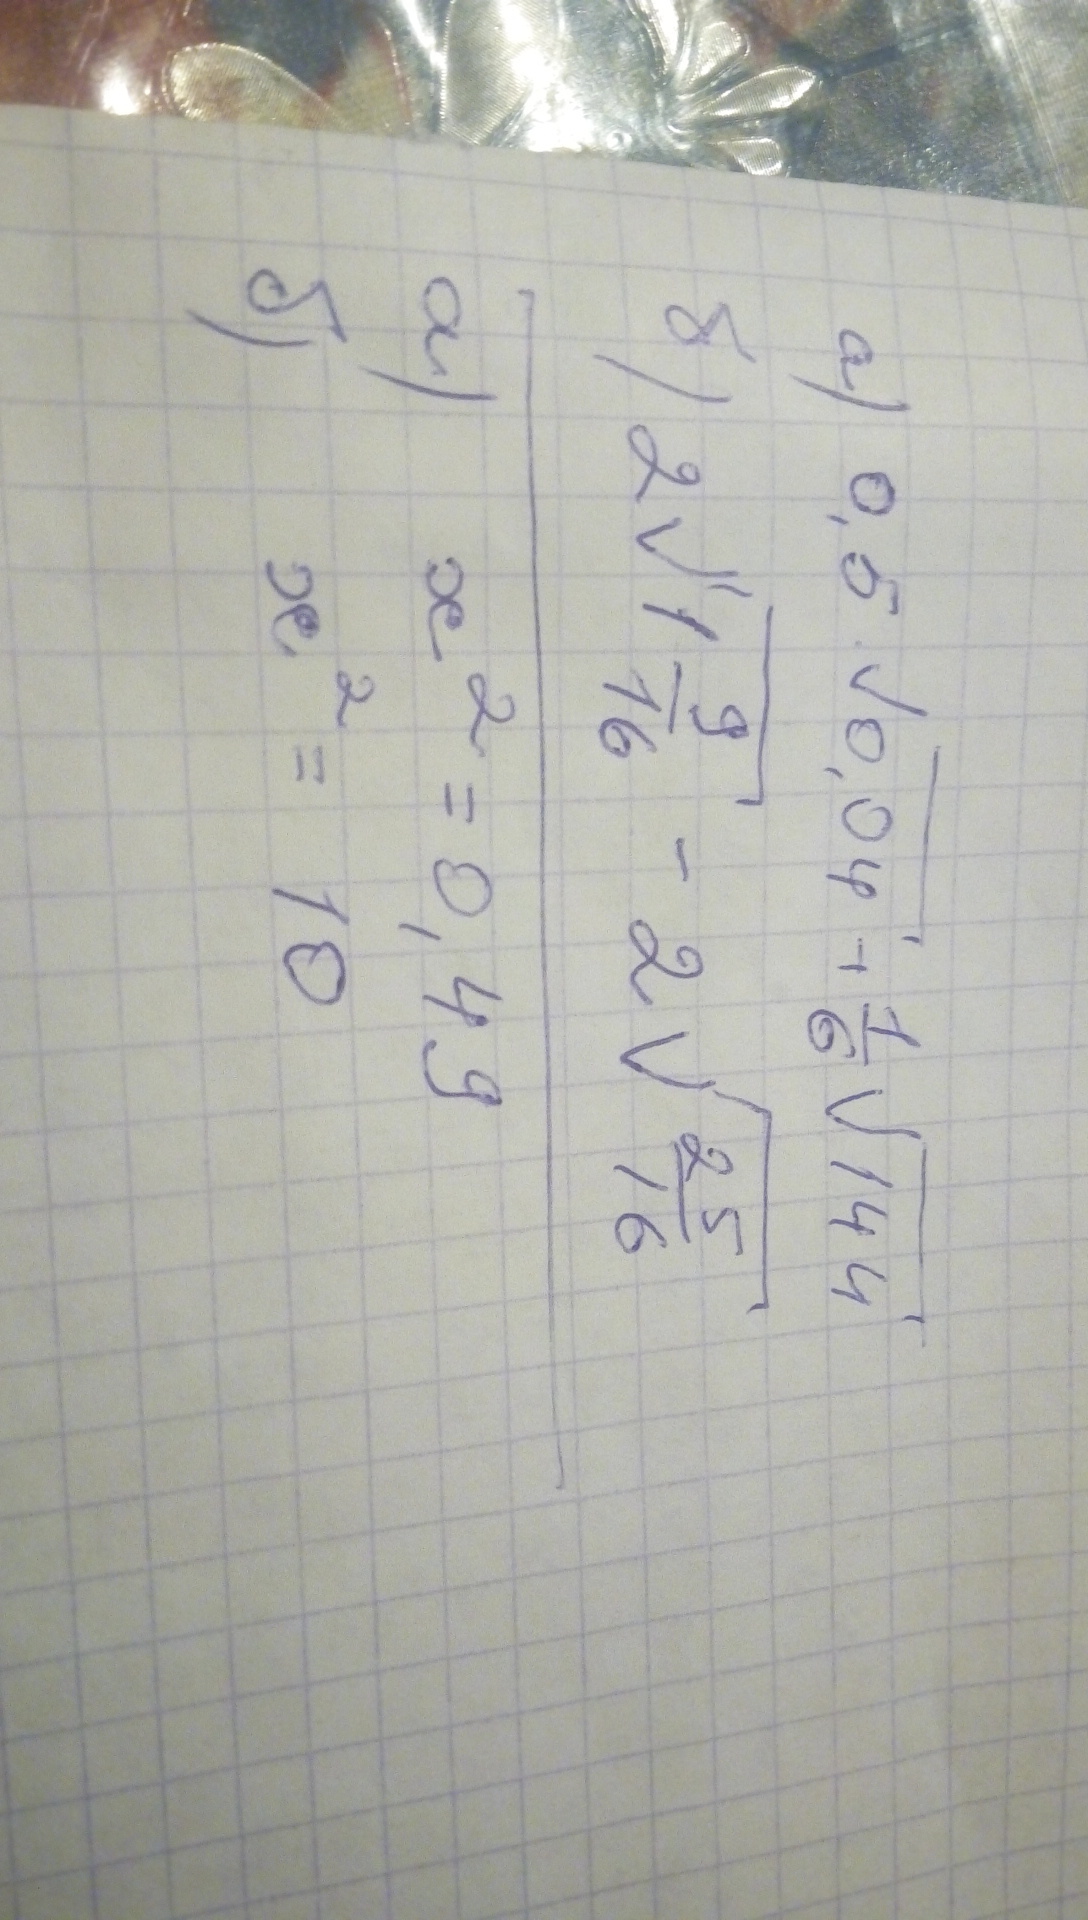 а) 0,5 · √0,04 + 1/6 √144
б) 2√1 9/16 - 2√25/16
а) x² = 0,49
б) x² = 10